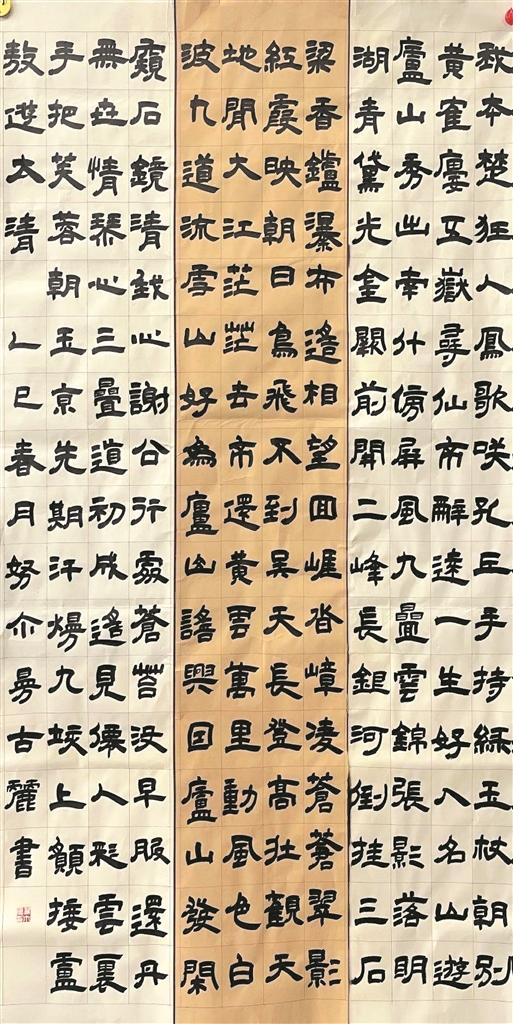 我本楚狂人鳳歌咲孔丘手持綠玉杖朝別
黄寉廔五嶽尋仙不辭遠一生好入名山遊
廬山秀出南斗傍屏風九疊雲錦張影落明
湖青黛光金闕前開二峰長銀河倒挂三石
梁香鑪瀑布遙相望回崖沓嶂凌蒼蒼翠影
紅霞映朝日鳥飛不到吳天長登高壯觀天
地間大江茫茫去不還黄雲萬里動風色白
波九道流雪山好為廬山謠興因廬山發閑
窺石鏡清我心謝公行處蒼苔没早服還丹
無世情琴心三疊道初成遙見僊人彩雲裏
手把芙蓉朝玉京先期汗熳九垓上願接盧
敖遊太清乙巳春月努尔曼古麗書